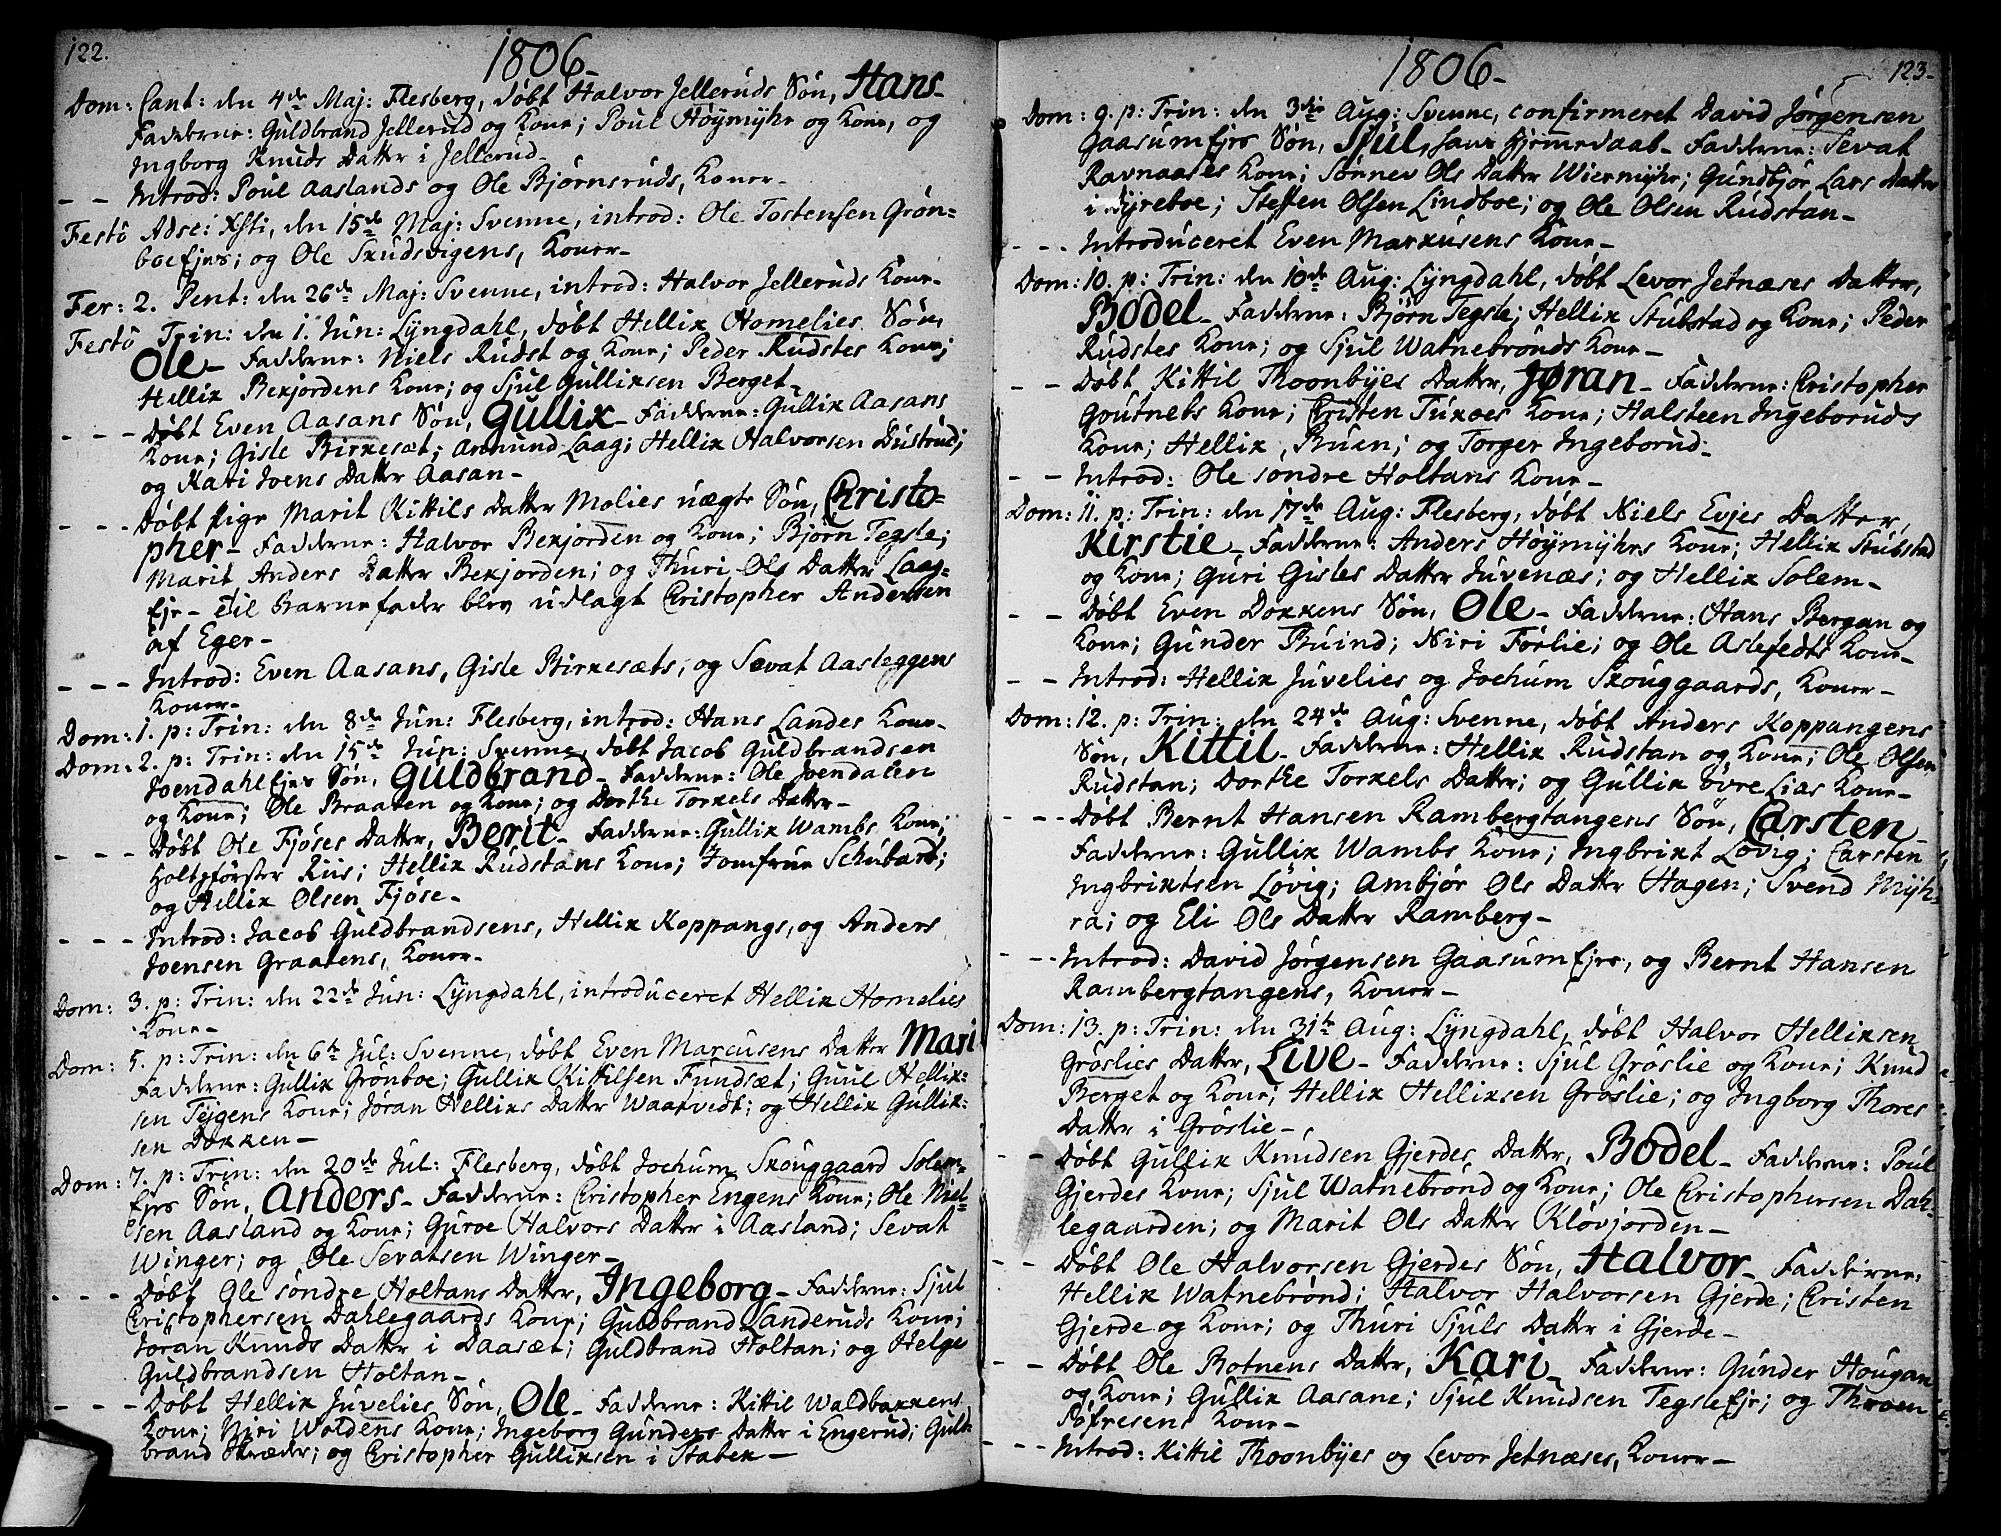 122.
1806.
Dom: Cant: den 4de Maj: Flesberg, døbt Halvor Jelleruds Søn, Hans.
Fadderne: Guldbrand Jellerud og Kone; Poul Høymyhr og Kone, og
Ingborg Knuds Datter i Jellerud.
- - Introd: Poul Aaslands og Ole Bjørnsruds, Koner.
Festô Adsc: Xsti, den 15de Maj: Svenne, introd: Ole Tostensen Grøn=
boeEjes; og Ole Skudsvigens, Koner.
Fer: 2. Pent: den 26de Maj: Svenne, introd: Halvor Jelleruds Kone.
Festô Trin: den 1. Jun: Lyngdahl, døbt Hellik Homelies Søn,
Ole. Fadderne: Niels Rudst og Kone; Peder Rudstes Kone;
Hellik Bekjordens Kone; og Sjul Gulliksen Berget.
- - - Døbt Even Aasans Søn, Gullik. Fadderne: Gullik Aasans
Kone; Gisle Birkesæt; Anmund Laag; Hellik Halvorsen Dustrud;
og Kari Joens Datter Aasan.
- - - Døbt Pige Marit Kittils Datter Molies uægte Søn, Christo=
pher. Fadderne: Halvor Bekjorden og Kone; Bjørn Tegsle;
Marit Anders Datter Bekjorden; og Thuri Ols Datter Laag=
Eje. Til Barnefader blev udlagt Christopher Andersen
af Eger.
- - - Introd: Even Aasans, Gisle Birkesæts, og Sevat Aasleggens
Koner.
Dom: 1. p: Trin: den 8de Jun: Flesberg, introd: Hans Landes Kone.
Dom: 2. p: Trin: den 15de Jun: Svenne, døbt Jacob Guldbrandsen
JoendahlEjes Søn, Guldbrand. Fadderne: Ole Joendalen
og Kone; Ole Braaten og Kone; og Dorthe Torkels Datter.
- - - Døbt Ole Fjøses Datter, Berit. Fadderne: Gullik Wambs Kone;
Holtzførster Riis; Hellik Rudstans Kone; Jomfrue Schubart;
og Hellik Olsen Fjøse.
- - - Introd: Jacob Guldbrandsens, Hellik Koppangs, og Anders
Joensen Graatens, Koner.
Dom: 3. p: Trin: den 22de Jun: Lyngdahl, introduceret Hellik Homelies
Kone.
Dom: 5. p: Trin: den 6te Jul: Svenne, døbt Even Marcusens Datter Mari
Fadderne: Gullik Grønboe; Gullik Kittilsen Fundsæt; Guul Hellik=
sen Tejgens Kone; Jøran Helliks Datter Waarvedt; og Hellik Gullik=
sen Dokken.
Dom: 7. p: Trin: den 20de Jul: Flesberg, døbt Jochum Skouggaard Solem=
Ejes Søn, Anders. Fadderne: Christopher Engens Kone; Ole Niel=
sen Aasland og Kone; Guroe Halvors Datter i Aasland; Sevat
Winger; og Ole Sevatsen Winger.
- - - Døbt Ole søndre Holtans Datter, Ingeborg. Fadderne: Sjul
Christophersen Dahlegaards Kone; Guldbrand Landeruds Kone;
Jøran Knuds Datter i Daasæt; Guldbrand Holtan; og Helge
Guldbrandsen Holtan.
- - - Døbt Hellik Juvelies Søn, Ole. Fadderne: Kittil Waldbakkens
Kone; Niri Woldens Kone; Ingeborg Gunders Datter i Engerud; Guld=
brand Skræder; og Christopher Gulliksen i Stabek.
1806.
123.
Dom: 9. p: Trin: den 3die Aug: Svenne, confirmeret David Jørgensen
GaasumEjes Søn, Sjul, hans Hjemmedaab. Fadderne: Sevat
Ravnaases Kone; Sønnev Ols Datter Wiermyhr; Gundbjør Lars Datter
i Byreboe; Steffen Olsen Lindboe; og Ole Olsen Rudstan.
- - - Introduceret Even Markusens Kone.
Dom: 10. p: Trin: den 10de Aug: Lyngdahl, døbt Levor Jetnæses Datter,
Bodel. Fadderne: Bjørn Tegsle; Hellik Stubstad og Kone; Peder
Rudstes Kone; og Sjul Watnebrønds Kone.
- - Døbt Kittil Thoonbyes Datter, Jøran. Fadderne: Christopher
Goutnebs Kone; Christen Tukoes Kone; Halsteen Ingeboruds
Kone; Hellik Bruen; og Torger Ingeborud.
- - Introd: Ole søndre Holtans Kone.
Dom: 11. p: Trin: den 17de Aug: Flesberg, døbt Niels Evjes Datter,
Kirstie. Fadderne: Anders Høymyhrs Kone; Hellik Stubstad
og Kone; Guri Gisles Datter Juvenæs; og Hellik Solem.
- - Døbt Even Dokkens Søn, Ole. Fadderne: Hans Bergan og
Kone; Gunder Bruind; Niri Førlie; og Ole Aslefedts Kone.
- - Introd: Hellik Juvelies og Jochum Skouggaards, Koner.
Dom: 12. p: Trin: den 24de Aug: Svenne, døbt Anders Koppangens
Søn, Kittil. Fadderne: Hellik Rudstan og Kone; Ole Olsen
Rudstan; Dorthe Torkels Datter; og Gullik øvre Lias Kone.
- - - Døbt Bernt Hansen Rambergtangens Søn, Carsten
Fadderne: Gullik Wambs Kone; Ingbrikt Løvig; Carsten
Ingbriktsen Løvig; Ambjør Ols Datter Hagen; Svend Myh=
ra; og Eli Ols Datter Ramberg.
- - - Introd: David Jørgensen GaasumEjes, og Bernt Hansen
Rambergtangens, Koner.
Dom: 13. p: Trin: den 31te Aug: Lyngdahl, døbt Halvor Helliksen
Grøslies Datter, Live. Fadderne: Sjul Grøslie og Kone; Knud
Berget og Kone; Hellik Helliksen Grøslie; og Ingborg Thores
Datter i Grøslie.
- - Døbt Gullik Knudsen Gjerdes Datter, Bodel. Fadderne: Poul
Gjerdes Kone; Sjul Watnebrønd og Kone; Ole Christophersen Dah=
legaarden; og Marit Ols Datter Kløvjorden.
- - Døbt Ole Halvorsen Gjerdes Søn, Halvor. Fadderne:
Hellik Watnebrønd; Halvor Halvorsen Gjerde; Christen
Gjerde og Kone; og Thuri Sjuls Datter i Gjerde.
- - Døbt Ole Botnens Datter, Kari. Fadderne: Gunder Hougan
og Kone; Gullik Aasane; Sjul Knudsen TegsleEje; og Throen
Pofresens Kone.
- - - Introd: Kittil Thoonbyes og Levor Jetnæses, Koner.